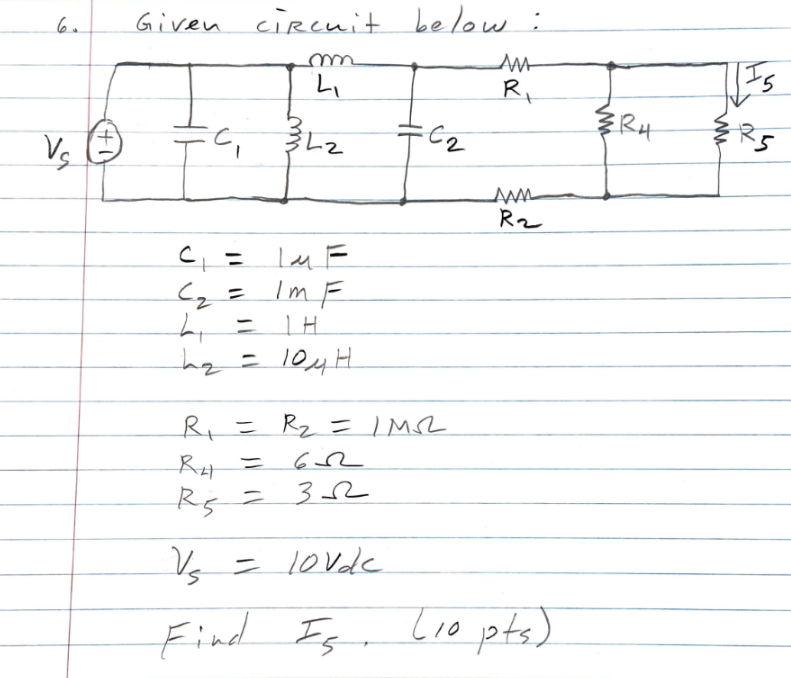 6. Given circuit below :
L₁ R₁ I₅
Vₛ + − C₁ L₂ C₂ R₄ R₅
R₂
C₁ = 1μF
C₂ = 1mF
L₁ = 1H
L₂ = 10μH
R₁ = R₂ = 1MΩ
R₄ = 6Ω
R₅ = 3Ω
Vₛ = 10Vdc
Find I₅. (10 pts)